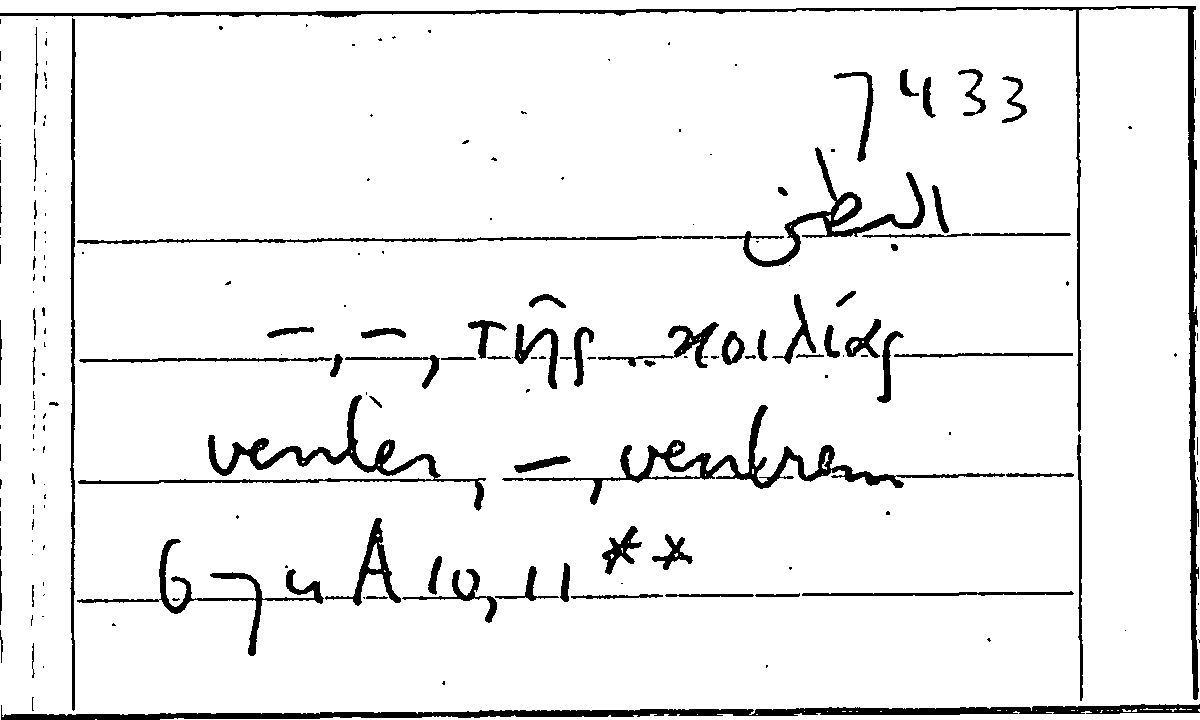 7433
البطن
–, –, τῆς .. κοιλίας
venter, –, ventrem
674 A 10, 11 **